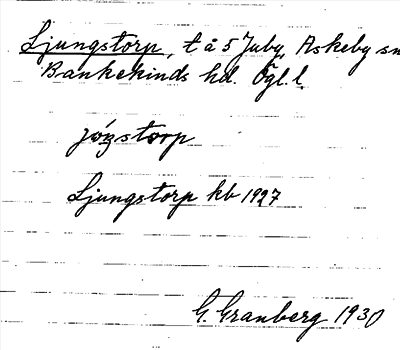 Ljungstorp, t å 5 Juby, Askeby sn
Bankekinds hd. Ögl. l.
jóṉstorp
Ljungstorp kb 1927
G. Granberg 1930